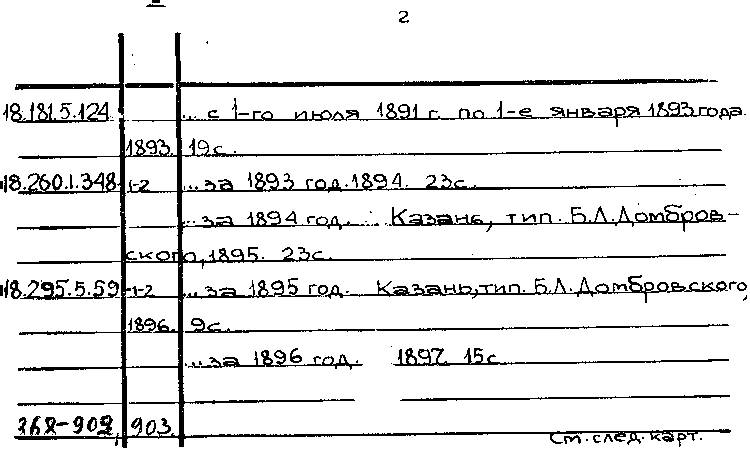 2
18.181.5.124 ... с 1-го июля 1891 г. по 1-е января 1893 года.
1893. 19с.
18.260.1.348 1-2 ...за 1893 год. 1894. 23с.
...за 1894 год. Казань, тип. Б.Л. Домбров-
ского, 1895. 23с.
18.295.5.59 1-2 ...за 1895 год. Казань, тип. Б.Л. Домбровского,
1896. 9с.
...за 1896 год. 1897. 15с.
903.
См. след. карт.